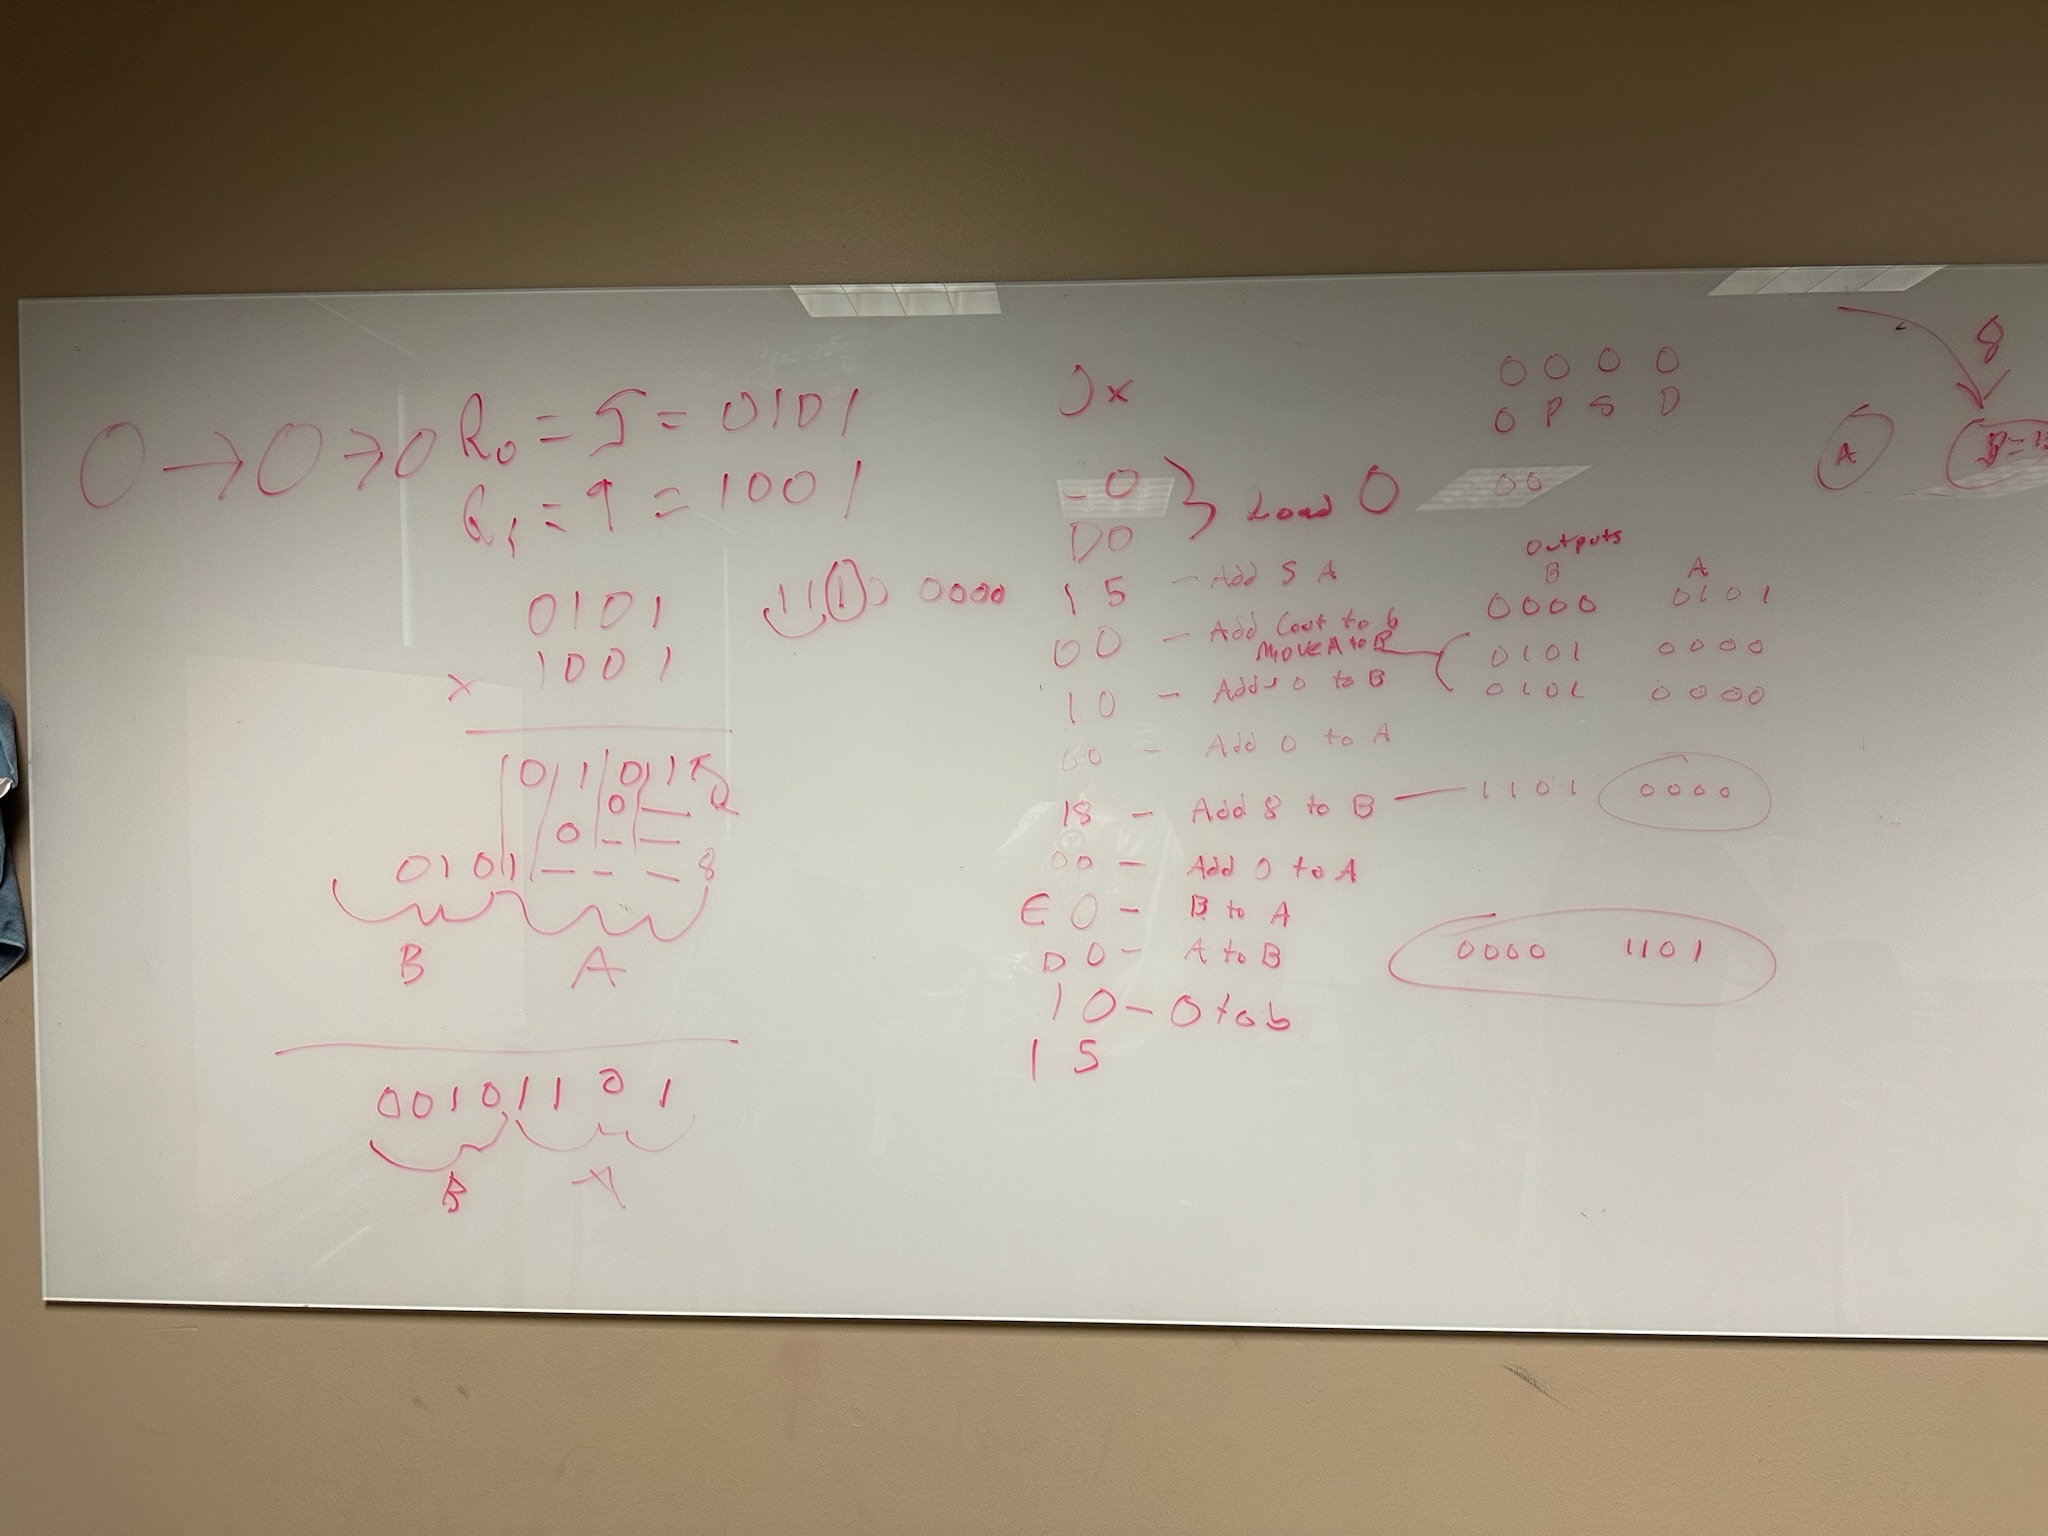 0 → 0 → 0 R0 = 5 = 0101
R1 = 9 = 1001
0101
× 1001
0 1 0 1
0 —
0 — —
0101 — — — 8
B A
00101101
B A
1110 0000
0x
-0
D0 } Load 0
15 — Add 5 A
00 — Add Cout to b
Move A to B
10 — Add 0 to B
00 — Add 0 to A
18 — Add 8 to B — 1101 0000
00 — Add 0 to A
E0 — B to A
D0 — A to B
10 — 0 to b
15
0 0 0 0
O P S D
00
Outputs
B A
0000 0101
0101 0000
0101 0000
0000 1101
8
A